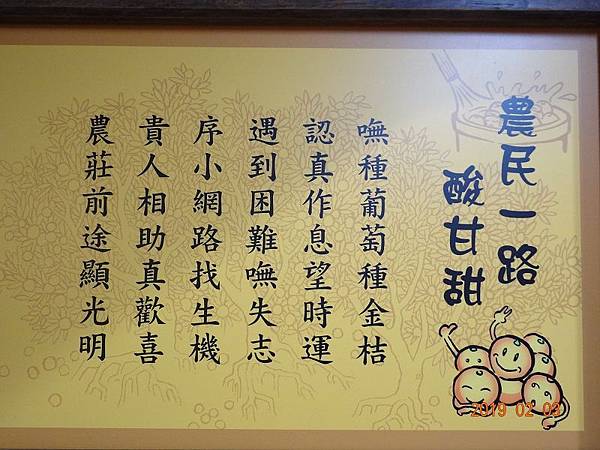 農民一路
酸甘甜
嘸種葡萄種金桔
認真作息望時運
遇到困難嘸失志
序小網路找生機
貴人相助真歡喜
農莊前途顯光明
2019 02 03